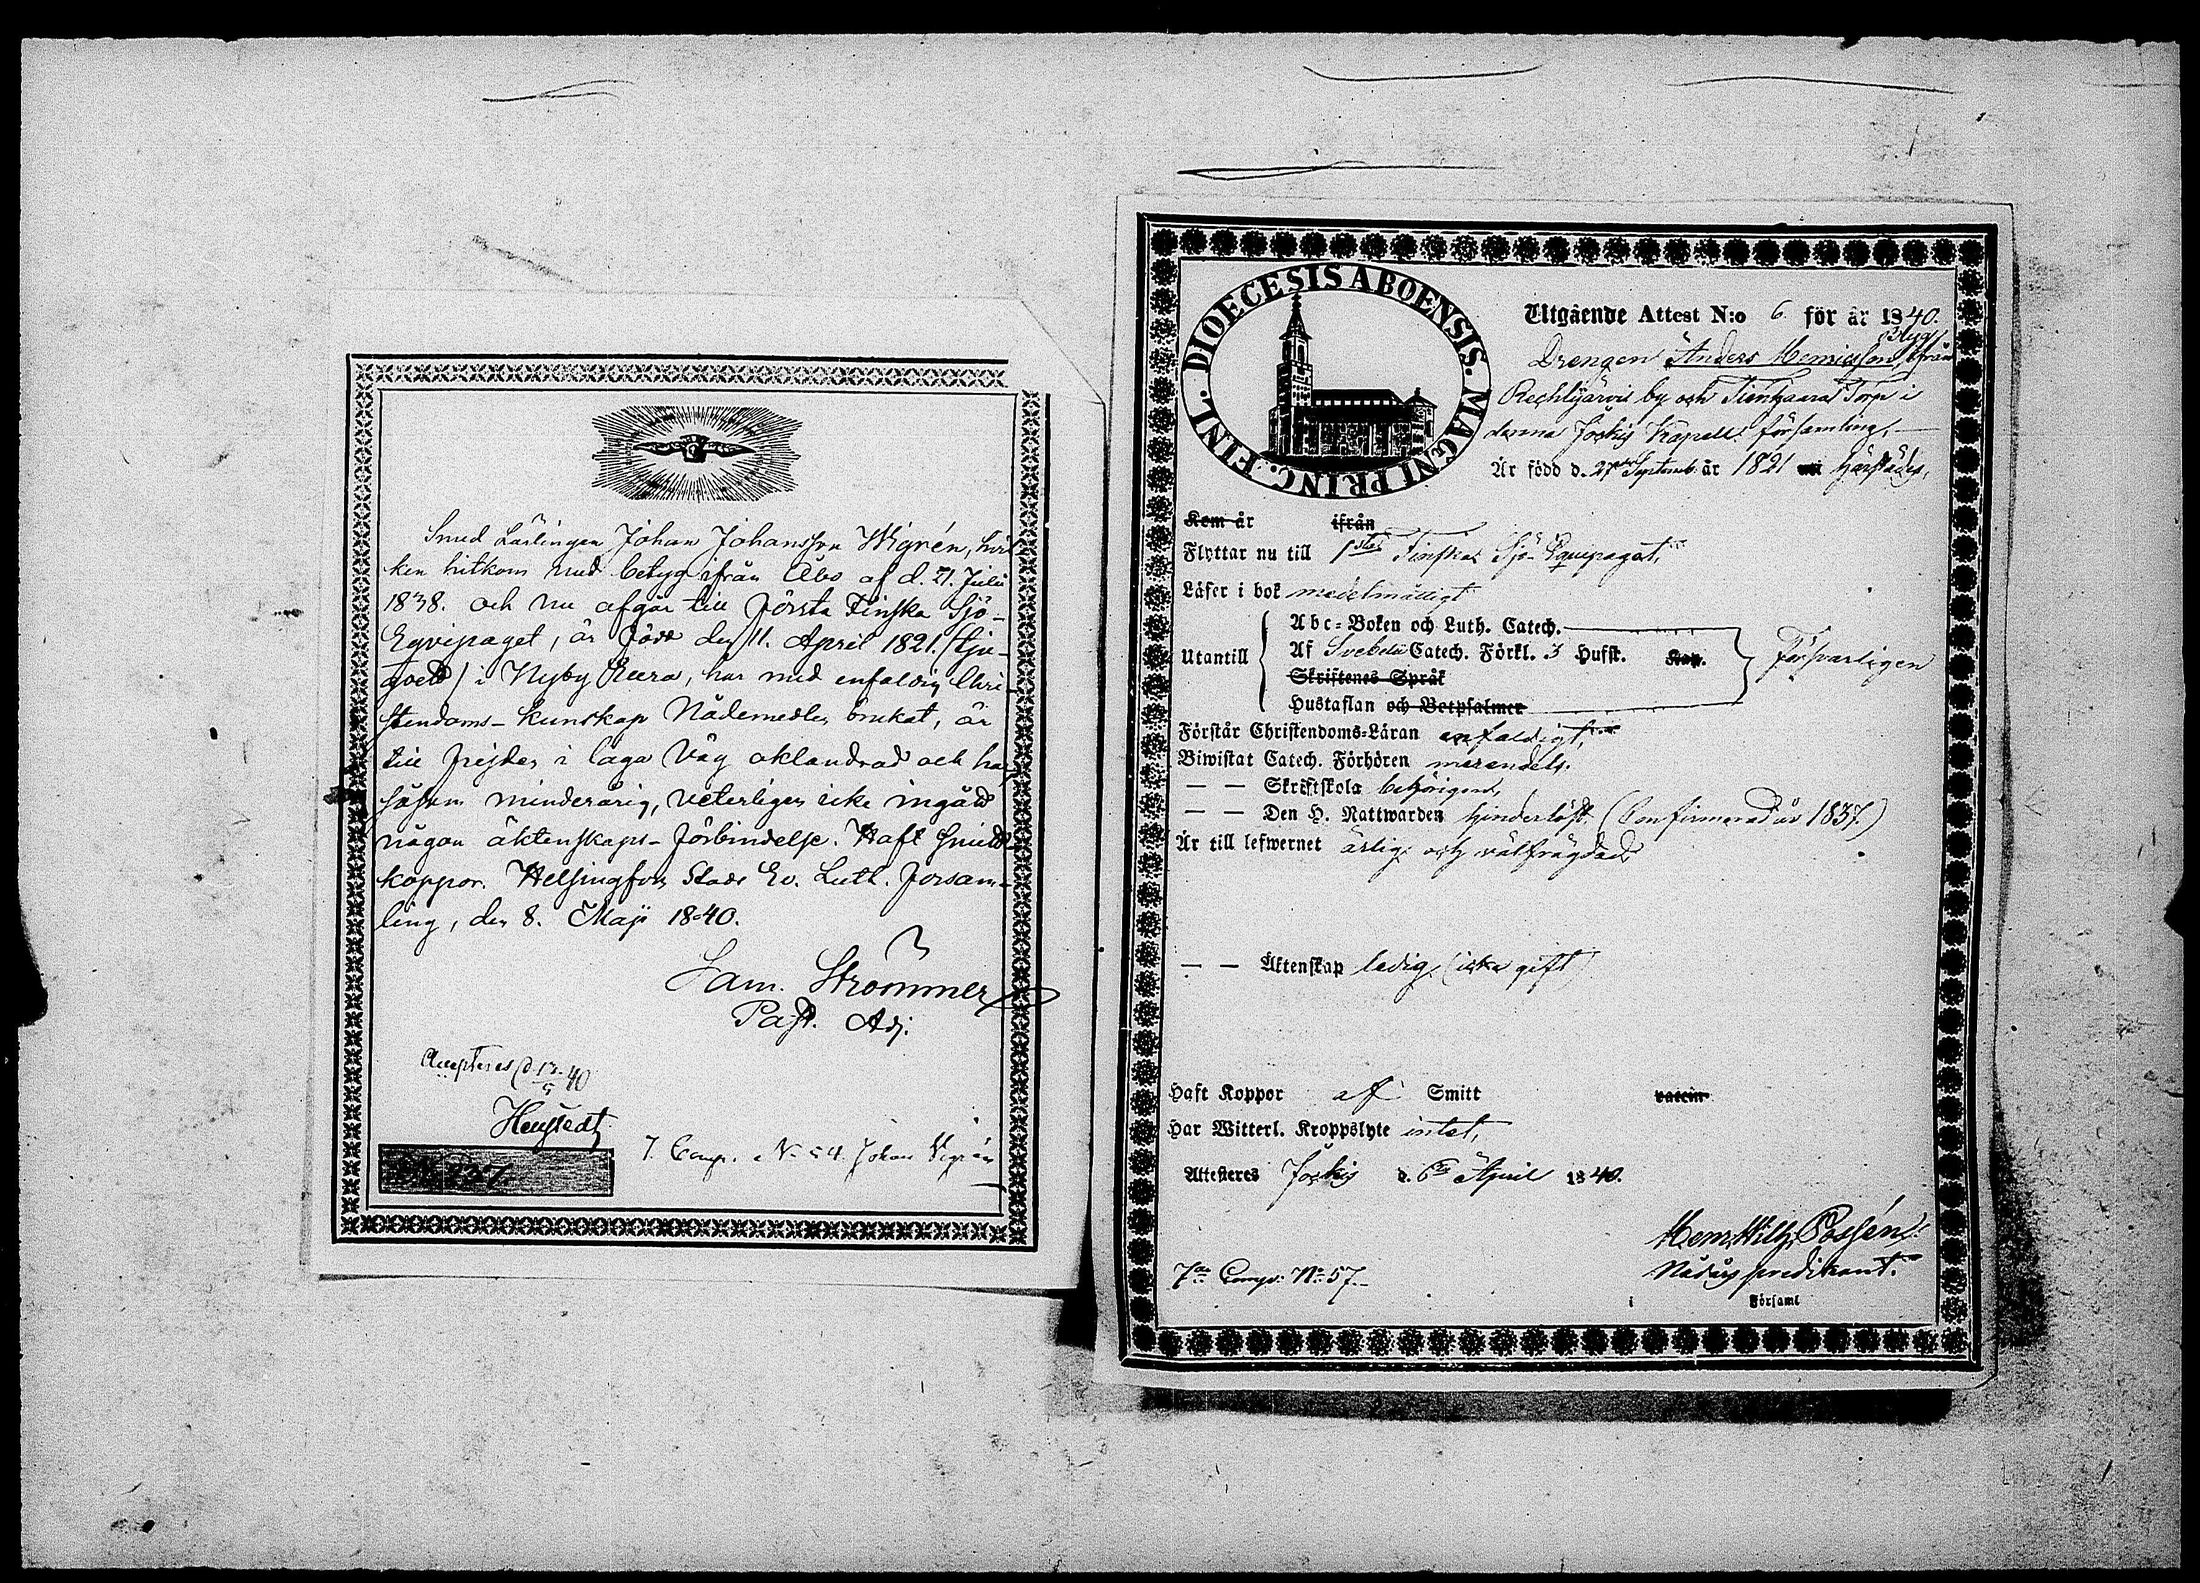 Smed Lärlingen Johan Johansson Wigrén, hvil-
ken hitkom med betyg ifrån Åbo af d. 21. Julii
1838. och nu afgår till Första Finska Sjö-
Eqvipaget, är född den 11. April 1821. (tju-
goett) i Nyby Reera, har med enfaldig Chri-
stendoms-kunskap Nådemedlen brukat, är
till frejden i laga väg oklandrad och har
såsom minderårig, veterligen icke ingått
någon äktenskaps-förbindelse. Haft Smitt-
koppor. Helsingfors Stads Ev. Luth. Försam-
ling, den 8. Maji 1840.
Sam. Strömmer
Past. Adj.
Accepteras d. 13/5 40
7. Comp. N 54. Johan Vigrén
237.
DIOECESIS ABOENSIS. MAGNI PRINC. FINL.
Utgående Attest N:o 6. för år 1840.
Drengen Anders Henricsson ifrån
by och Torp i
denna Jockis Kapell församling,
Är född d. 27de Septemb. år 1821 härstädes,
Kom år ifrån
Flyttar nu till 1sta Finska Sjö-Equipaget,
Läser i bok medelmåttigt
Utantill
Abc-Boken och Luth. Catech.
Af Svebelii Catech. Förkl. 3 Hufst. Kap.
Skriftenes Språk
Hustaflan och Botpsalmer
Försvarligen
Förstår Christendoms-Läran enfaldigt,
Biwistat Catech. Förhören merendels.
— — Skriftskola behörigen,
— — Den H. Nattwarden hinderlöst. (Confirmerad år 1837.)
Är till lefwernet ärlig och välfrägdad
— — Äktenskap ledig, (icke gift)
Haft Koppor af Smitt vaccin
Har Witterl. Kroppslyte intet,
Attesteres Jockis d. 6 April 1840.
Henr. Wilh.
Nådårspredikant.
7de Comp: No 57
i Församl